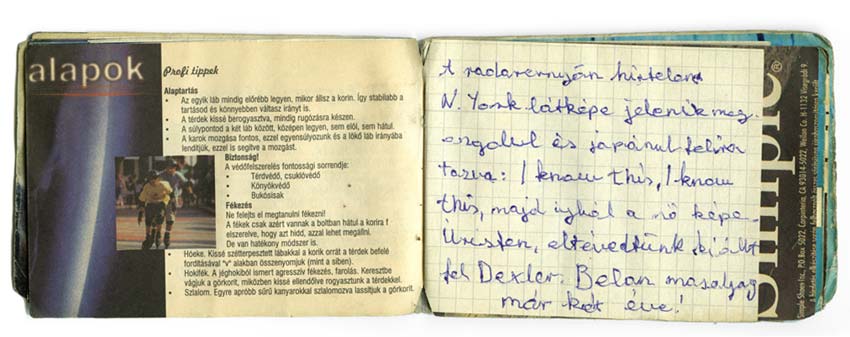 alapok
Profi tippek
Alaptartás
• Az egyik láb mindig előrébb legyen, mikor állsz a korin. Így stabilabb a
tartásod és könnyebben váltasz irányt is.
• A térdek kissé berogyasztva, mindig rugózásra készen.
• A súlypontod a két láb között, középen legyen, sem elöl, sem hátul.
• A karok mozgása fontos, ezzel egyensúlyozunk és a lökő láb irányába
lendítjük, ezzel is segítve a mozgást.
Biztonság!
A védőfelszerelés fontossági sorrendje:
• Térdvédő, csuklóvédő
• Könyökvédő
• Bukósisak
Fékezés
Ne felejts el megtanulni fékezni!
A fékek csak azért vannak a boltban hátul a korira f
elszerelve, hogy azt hidd, azzal lehet megállni.
De van hatékony módszer is.
• Hóeke. Kissé szétterpesztett lábakkal a korik orrát a térdek befelé
fordításával "v" alakban összenyomjuk (mint a síben).
• Hokifék. A jéghokiból ismert agresszív fékezés, farolás. Keresztbe
vágjuk a görkorit, miközben kissé ellendőlve rogyasztunk a térdekkel.
• Szlalom. Egyre apróbb sűrű kanyarokkal szlalomozva lassítjuk a görkorit.
A radarernyőn hirtelen
N. York látképe jelenik meg.
angolul és japánul felira
tozva: I know this, I know
this, majd újból a nő képe.
Úristen, eltévedtünk kiált
fel Dexler. Belan mosolyog
már két éve!
Simple®
Simple Shoes Inc. P.O. Box 5022, Carpinteria, CA 93014-5022, Wellon Co. H-1132 Visegrádi 9.